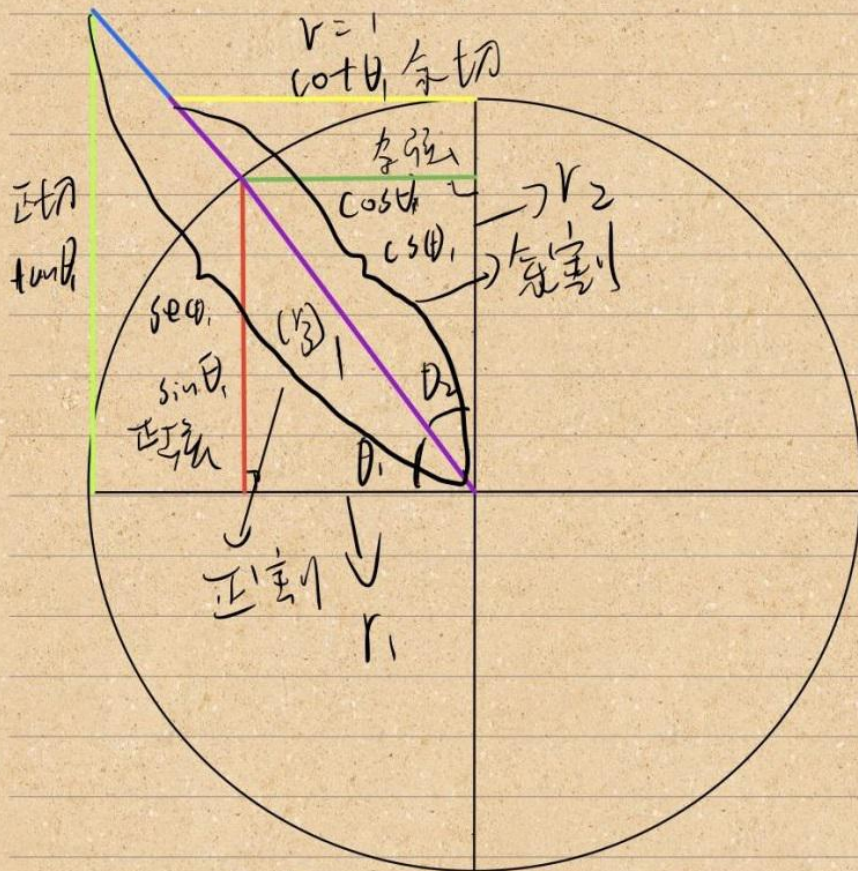 r=1
cotθ₁ 余切
余弦
cosθ₁
r₂
cscθ₁
余割
正切
tanθ₁
secθ₁
(r₃)
1
sinθ₁
正弦
θ₂
θ₁
正割
r₁